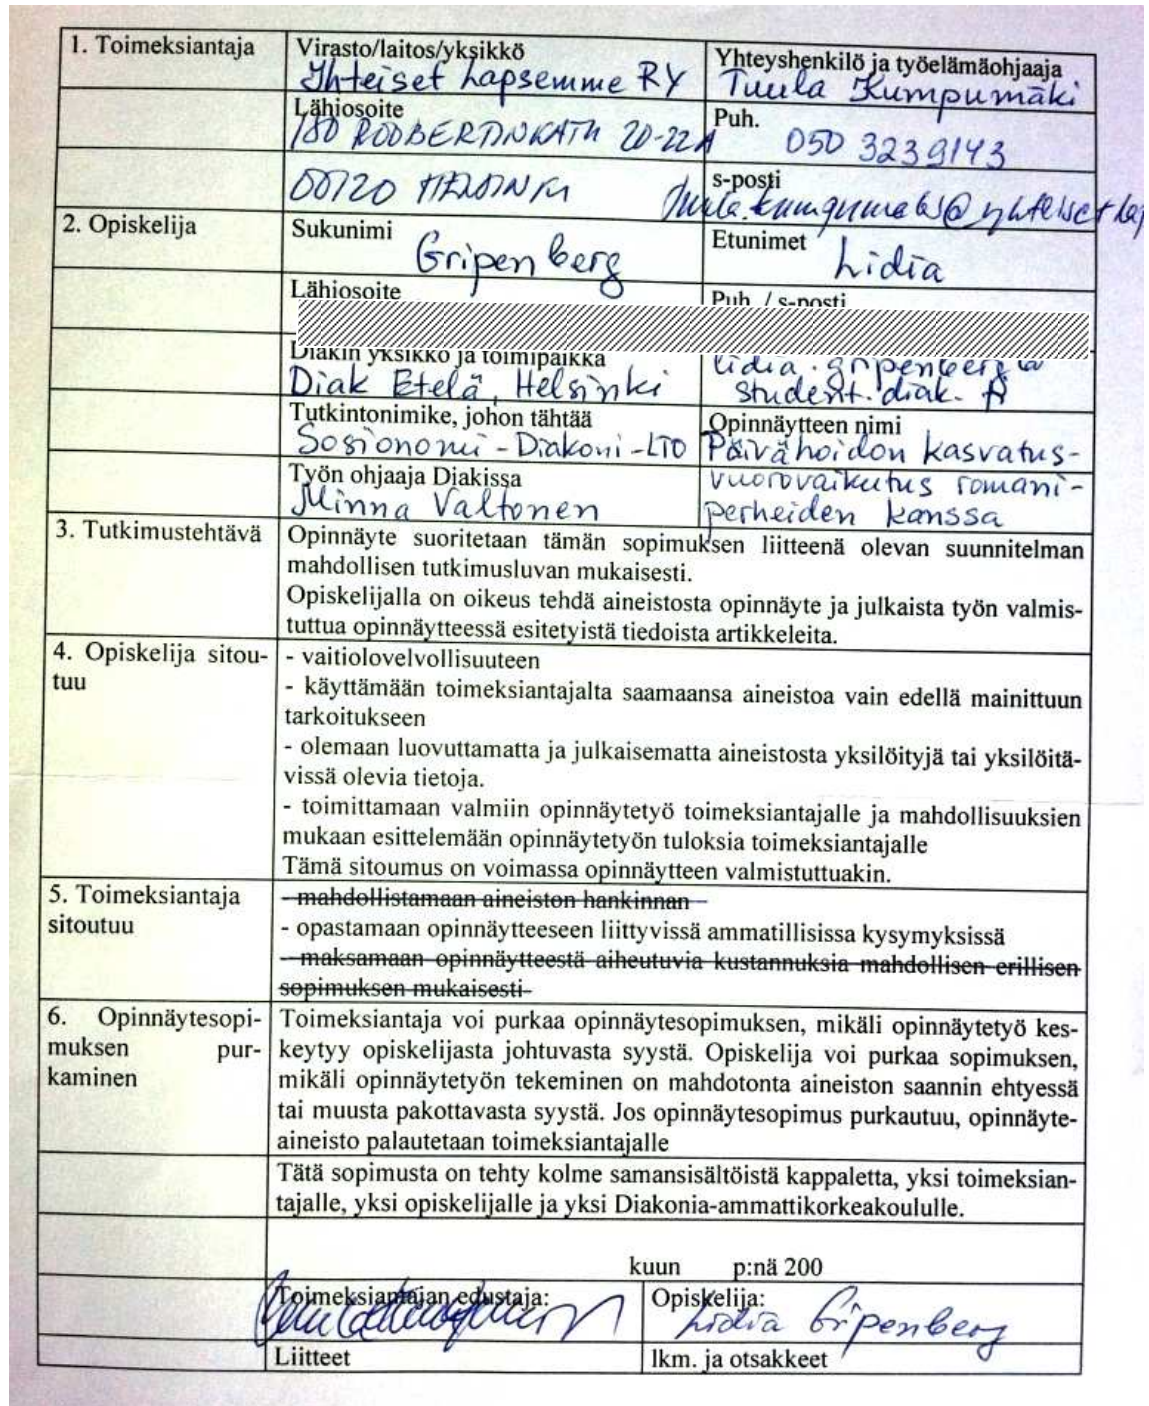 1. Toimeksiantaja
Virasto/laitos/yksikkö
Yhteiset Lapsemme RY
Yhteyshenkilö ja työelämäohjaaja
Tuula Kumpumäki
Lähiosoite
ISO ROOBERTINKATU 20-22A
Puh.
050 3239143
00120 HELSINKI
s-posti
tuula.kumpumaki@yhteiset
2. Opiskelija
Sukunimi
Gripenberg
Etunimet
Lidia
Lähiosoite
Puh. / s-posti
Diakin yksikkö ja toimipaikka
Diak Etelä, Helsinki
lidia.gripenberg@
student.diak.fi
Tutkintonimike, johon tähtää
Sosionomi-Diakoni-LTO
Opinnäytteen nimi
Päivähoidon kasvatus-
vuorovaikutus romani-
perheiden kanssa
Työn ohjaaja Diakissa
Minna Valtonen
3. Tutkimustehtävä
Opinnäyte suoritetaan tämän sopimuksen liitteenä olevan suunnitelman
mahdollisen tutkimusluvan mukaisesti.
Opiskelijalla on oikeus tehdä aineistosta opinnäyte ja julkaista työn valmis-
tuttua opinnäytteessä esitetyistä tiedoista artikkeleita.
4. Opiskelija sitou-
tuu
- vaitiolovelvollisuuteen
- käyttämään toimeksiantajalta saamaansa aineistoa vain edellä mainittuun
tarkoitukseen
- olemaan luovuttamatta ja julkaisematta aineistosta yksilöityjä tai yksilöitä-
vissä olevia tietoja.
- toimittamaan valmiin opinnäytetyö toimeksiantajalle ja mahdollisuuksien
mukaan esittelemään opinnäytetyön tuloksia toimeksiantajalle
Tämä sitoumus on voimassa opinnäytteen valmistuttuakin.
5. Toimeksiantaja
sitoutuu
- mahdollistamaan aineiston hankinnan
- opastamaan opinnäytteeseen liittyvissä ammatillisissa kysymyksissä
- maksamaan opinnäytteestä aiheutuvia kustannuksia mahdollisen erillisen
sopimuksen mukaisesti
6. Opinnäytesopi-
muksen pur-
kaminen
Toimeksiantaja voi purkaa opinnäytesopimuksen, mikäli opinnäytetyö kes-
keytyy opiskelijasta johtuvasta syystä. Opiskelija voi purkaa sopimuksen,
mikäli opinnäytetyön tekeminen on mahdotonta aineiston saannin ehtyessä
tai muusta pakottavasta syystä. Jos opinnäytesopimus purkautuu, opinnäyte-
aineisto palautetaan toimeksiantajalle
Tätä sopimusta on tehty kolme samansisältöistä kappaletta, yksi toimeksian-
tajalle, yksi opiskelijalle ja yksi Diakonia-ammattikorkeakoululle.
kuun p:nä 200
Toimeksiantajan edustaja:
Opiskelija:
Lidia Gripenberg
Liitteet
lkm. ja otsakkeet